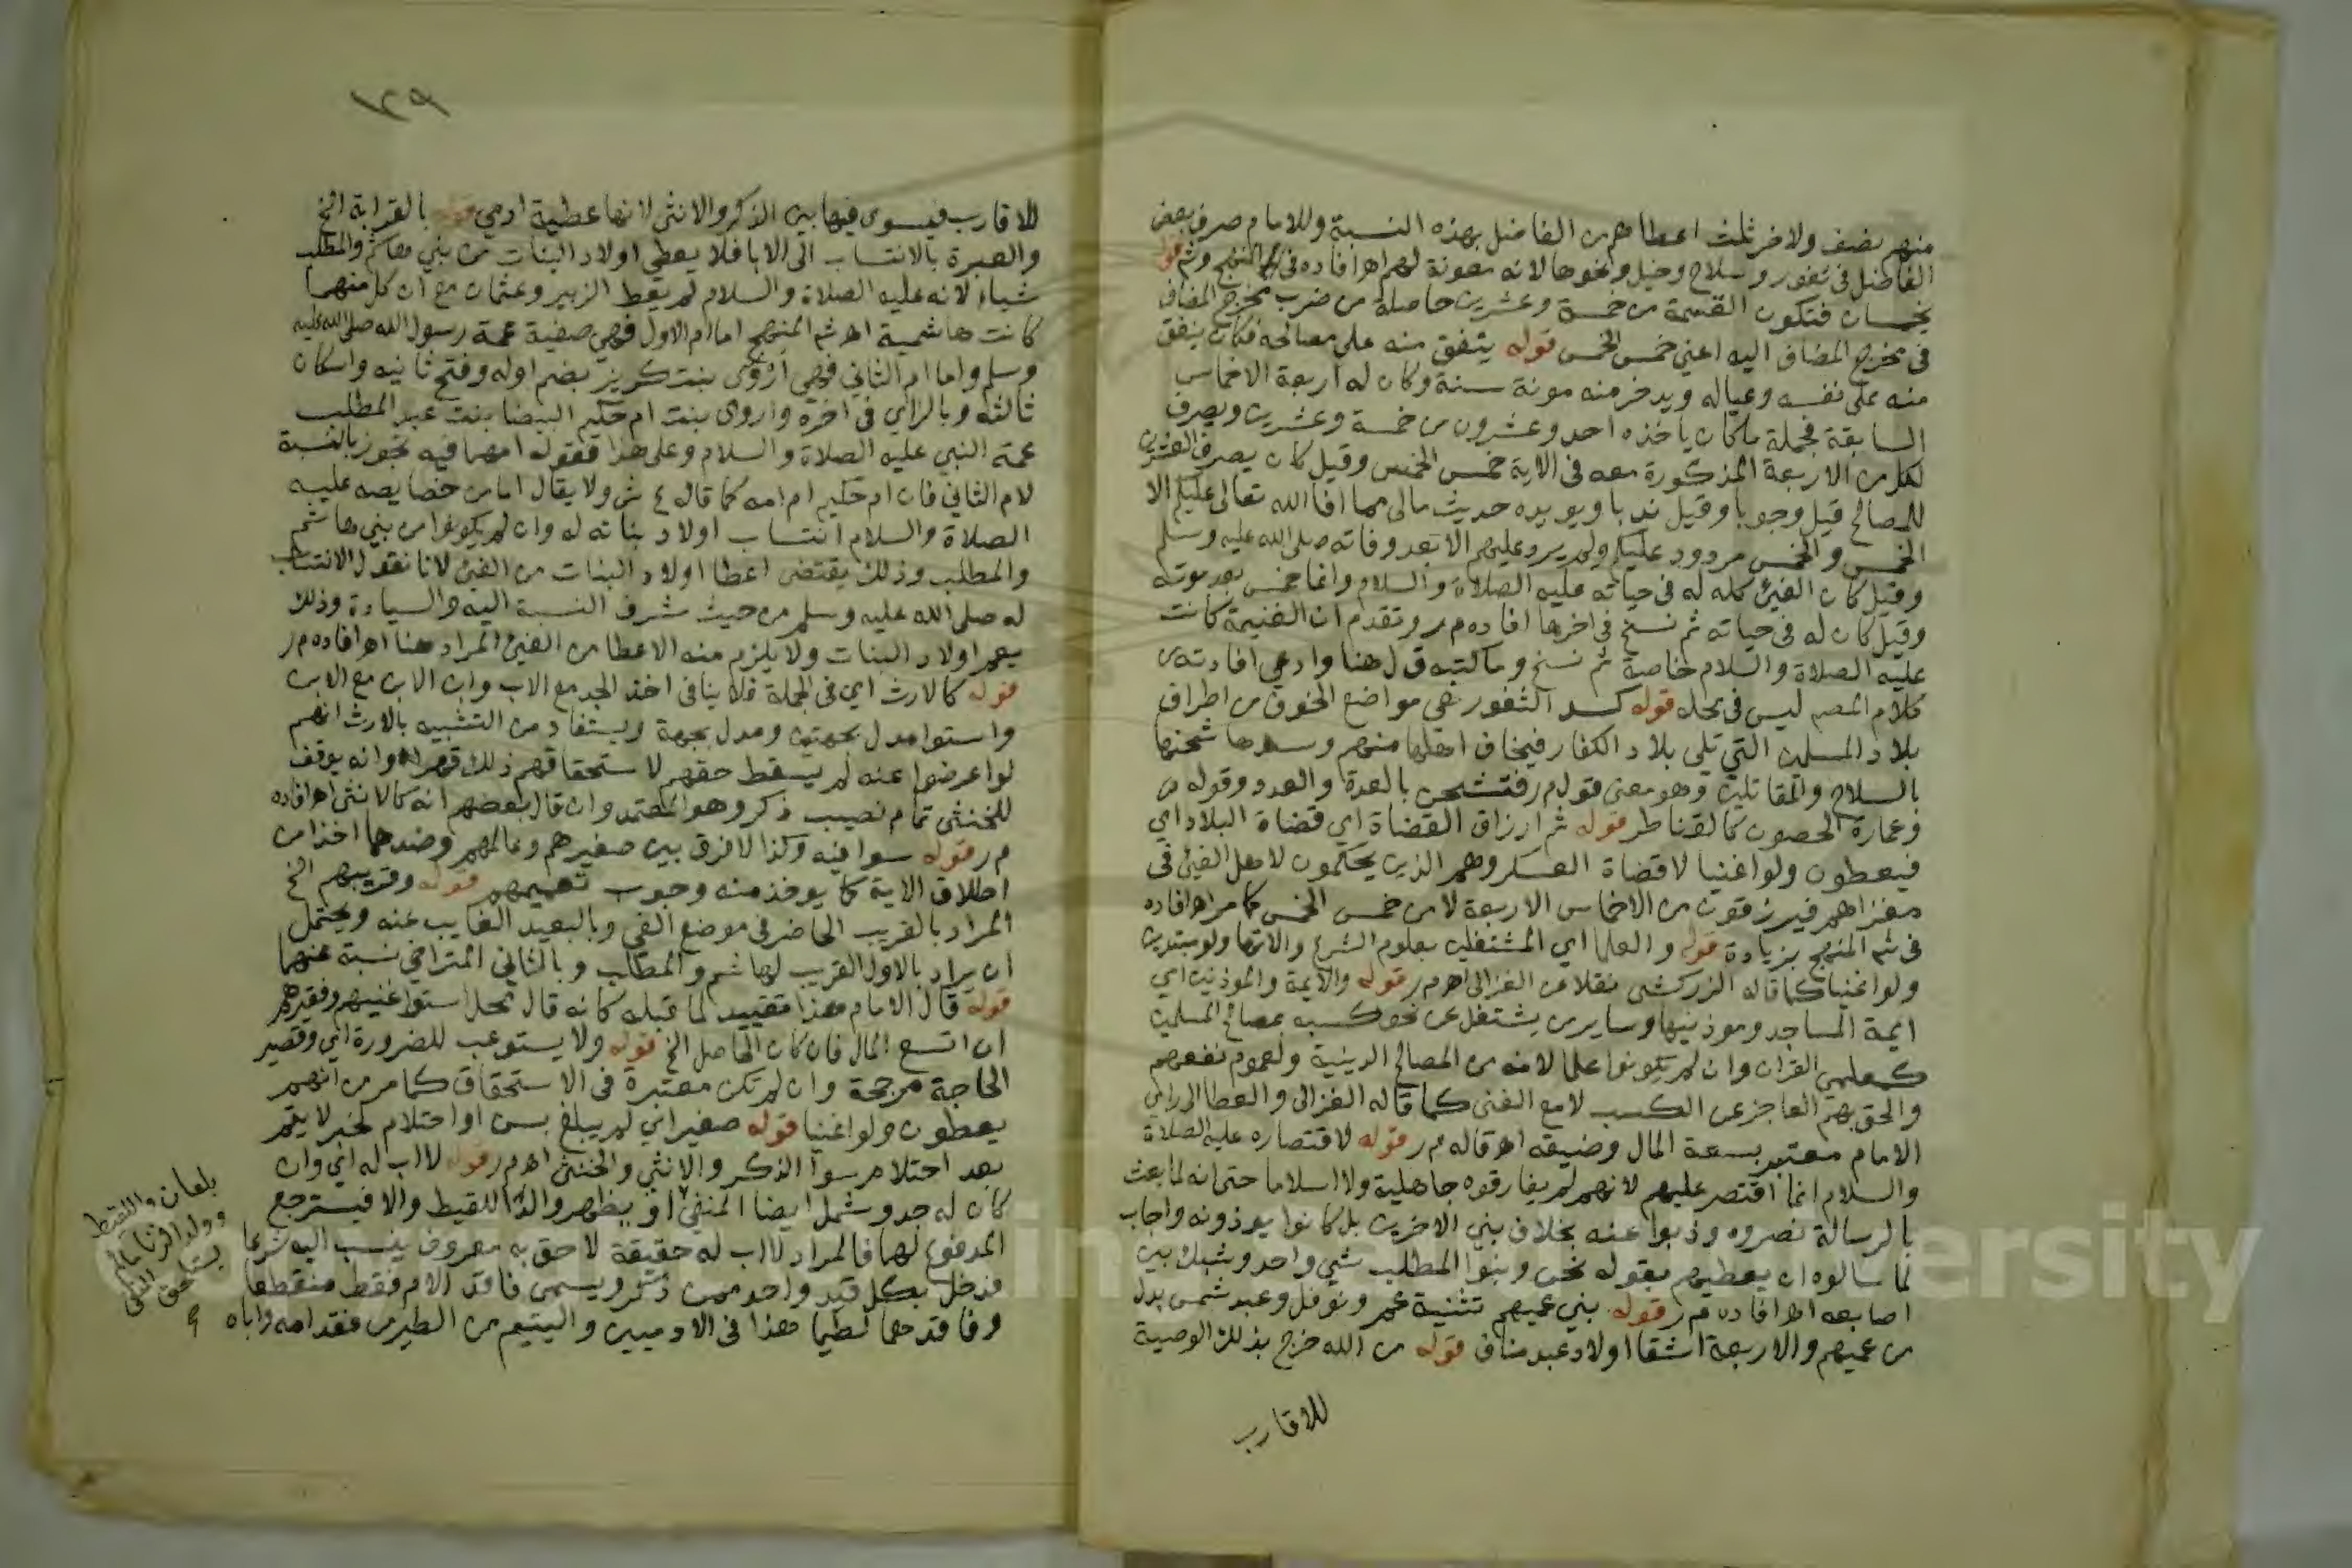 منهم نصف ولاخر ثلث اعطاهم من الفاضل بهذه النسبة وللامام صرف بعض
الفاضل في ثغور وسلاح وخيل ونحوها لانه معونة لهم اه افاده في المنهج وشم قوله
بخمسان فتكون القسمة من خمسة وعشرين حاصلة من ضرب مخرج المضاف
في مخرج المضاف اليه اعني خمس الخمس قوله ينفق منه على مصالحه فكان ينفق
منه على نفسه وعياله ويدخر منه مونة سنة وكان له اربعة الاخماس
السابقة فجملة ما كان ياخذه احد وعشرون من خمسة وعشرين ويصرف
لكل من الاربعة المذكورة معه في الاية خمس الخمس وقيل كان يصرف العشرين
للمصالح قيل وجوبا وقيل ندبا ويويده حديث مالى مما افا الله تعالى عليكم الا
الخمس والخمس مردود عليكم ولم يرد عليهم الا بعد وفاته صلى الله عليه وسلم
وقيل كان الفئ كله له في حياته عليه الصلاة والسلام وانما خمس بعد موته
وقيل كان له في حياته ثم نسخ في اخرها افاده م ر وتقدم ان الغنيمة كانت
عليه الصلاة والسلام خاصة ثم نسخ وما كتبه ق ل هنا وادعي افادته من
كلام المصم ليس في محله قوله كسد الثغور هي مواضع الخوف من اطراف
بلاد المسلمين التي تلى بلاد الكفار فيخاف اهلها منهم وسدها شحنها
بالسلاح والمقاتلين وهو معنى قول م ر فتشحن بالعدة والعدد وقوله من
وعمارة الحصون كالقناطر قوله ثم ارزاق القضاة اي قضاة البلاد اي
فيعطون ولو اغنيا لا قضاة العسكر وهم الذين يحكمون لاهل الفئ في
مغزاهم فيرزقون من الاخماس الاربعة لا من خمس الخمس كما مر اه افاده
في شم المنهج بزيادة قوله والعلما اي المشتغلين بعلوم الشرع والاتها ولو مبتدين
ولو اغنيا كما قاله الزركشى نقلا عن الغزالى اه م ر قوله والايمة والموذنين اي
ايمة المساجد وموذنيها وساير من يشتغل عن نحو كسبه بمصالح المسلمين
كمعلمي القران وان لم يكونوا علما لانه من المصالح الدينية ولعموم نفعهم
والحق بهم العاجز عن الكسب لا مع الغنى كما قاله الغزالى والعطا الى راي
الامام معتبر بسعة المال وضيقه اه قاله م ر قوله لاقتصاره عليه الصلاة
والسلام انما اقتصر عليهم لانهم لم يفارقوه جاهلية ولا اسلاما حتى انه لما بعث
بالرسالة نصروه وذبوا عنه بخلاف بني الاخرين بل كانوا يوذونه واجاب
لما سالوه ان يعطيهم بقوله نحن وبنوا المطلب شي واحد وشبك بين
اصابعه اه افاده م ر قوله بني عميهم تثنية عم ونوفل وعبد شمس بدل
من عميهم والاربعة اشقا اولاد عبد مناف قوله من الله خرج بذلك الوصية
للاقارب
١٢٩
للاقارب فيسوى فيها بين الذكر والانثى لانها عطية ادمي قوله بالقرابة الخ
والعبرة بالانتساب الى الابا فلا يعطي اولاد البنات من بني هاشم والمطلب
شياء لانه عليه الصلاة والسلام لم يعط الزبير وعثمان مع ان كل منهما
كانت هاشمية اه شم المنهج اما ام الاول فهي صفية عمة رسول الله صلى الله عليه
وسلم واما ام الثاني فهي اروى بنت كريز بضم اوله وفتح ثانيه واسكان
ثالثه وبالزاي في اخره واروى بنت ام حكيم البيضا بنت عبد المطلب
عمة النبي عليه الصلاة والسلام وعلى هذا فقوله امهما فيه تجوز بالنسبة
لام الثاني فان ام حكيم ام امه كما قاله ع ش ولا يقال اما من خصايصه عليه
الصلاة والسلام انتساب اولاد بناته له وان لم يكونوا من بني هاشم
والمطلب وذلك يقتضى اعطا اولاد البنات من الفئ لانا نقول الانتساب
له صلى الله عليه وسلم من حيث شرف النسبة اليه والسيادة وذلك
يعم اولاد البنات ولا يلزم منه الاعطا من الفئ المراد هنا اه افاده م ر
قوله كالارث اي في الجملة فلا ينافى اخذ الجد مع الاب وابن الابن مع الابن
واستوا مدل بجهتين ومدل بجهة ويستفاد من التشبيه بالارث انهم
لو اعرضوا عنه لم يسقط حقهم لاستحقاقهم ذلك قهرا وانه يوقف
للخنثى تمام نصيب ذكر وهو المعتمد وان قال بعضهم انه كالانثى اه افاده
م ر قوله سوا فيه وكذا لا فرق بين صغيرهم وعالمهم وضدهما اخذا من
اطلاق الاية كما يوخذ منه وجوب تعميمهم قوله وقريبهم الخ
المراد بالقريب الحاضر في موضع الفئ وبالبعيد الغايب عنه ويحتمل
ان يراد بالاول القريب لهاشم والمطلب وبالثاني المتراخي نسبة عنهما
قوله قال الامام هذا تقييد لما قبله كانه قال محل استوا غنيهم وفقيرهم
ان اتسع المال فان كان الحاصل الخ قوله ولا يستوعب للضرورة اي وقصير
الحاجة مرجحة وان لم تكن معتبرة في الاستحقاق كما مر من انهم
يعطون ولو اغنيا قوله صغير اي لم يبلغ بسن او احتلام لخبر لا يتم
بعد احتلام سوا الذكر والانثى والخنثى اه م ر قوله لا اب له اي وان
كان له جد وشمل ايضا المنفي او يظهر والد اللقيط والا فيسترجع
المدفوع لهما فالمراد لا اب له حقيقة لاحق به معروف ينسب اليه شرعا
فدخل بكل قيد واحد ممن ذكر ويسمى فاقد الام فقط منقطعا
وفاقدهما لطيما هذا في الادميين واليتيم من الطير من فقد امه واباه
بلعان واللقيط
وولد الزنا ما لم
يستلحق المنفي